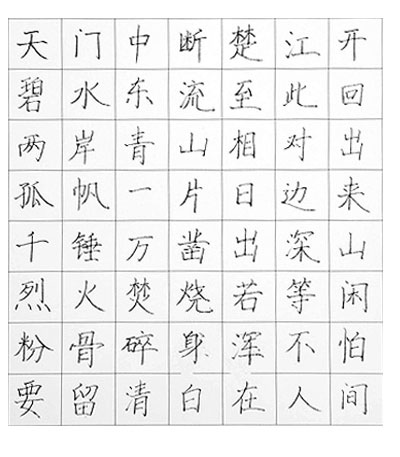 天门中断楚江开
碧水东流至此回
两岸青山相对出
孤帆一片日边来
千锤万凿出深山
烈火焚烧若等闲
粉骨碎身浑不怕
要留清白在人间